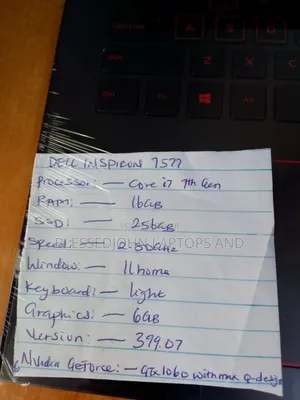 A S D
Z X C
Fn Alt
DELL INSPIRON 7577
Processor: — Core i7 7th Gen
RAM: — 16GB
SSD: — 256GB
Speed: — 2.80GHz
BLESSEDJOHN LAPTOPS AND
Window: — 11 home
Keyboard: — light
Graphics: — 6GB
Version: — 399.07
Nvidia Geforce: — GTX 1060 with max q-design